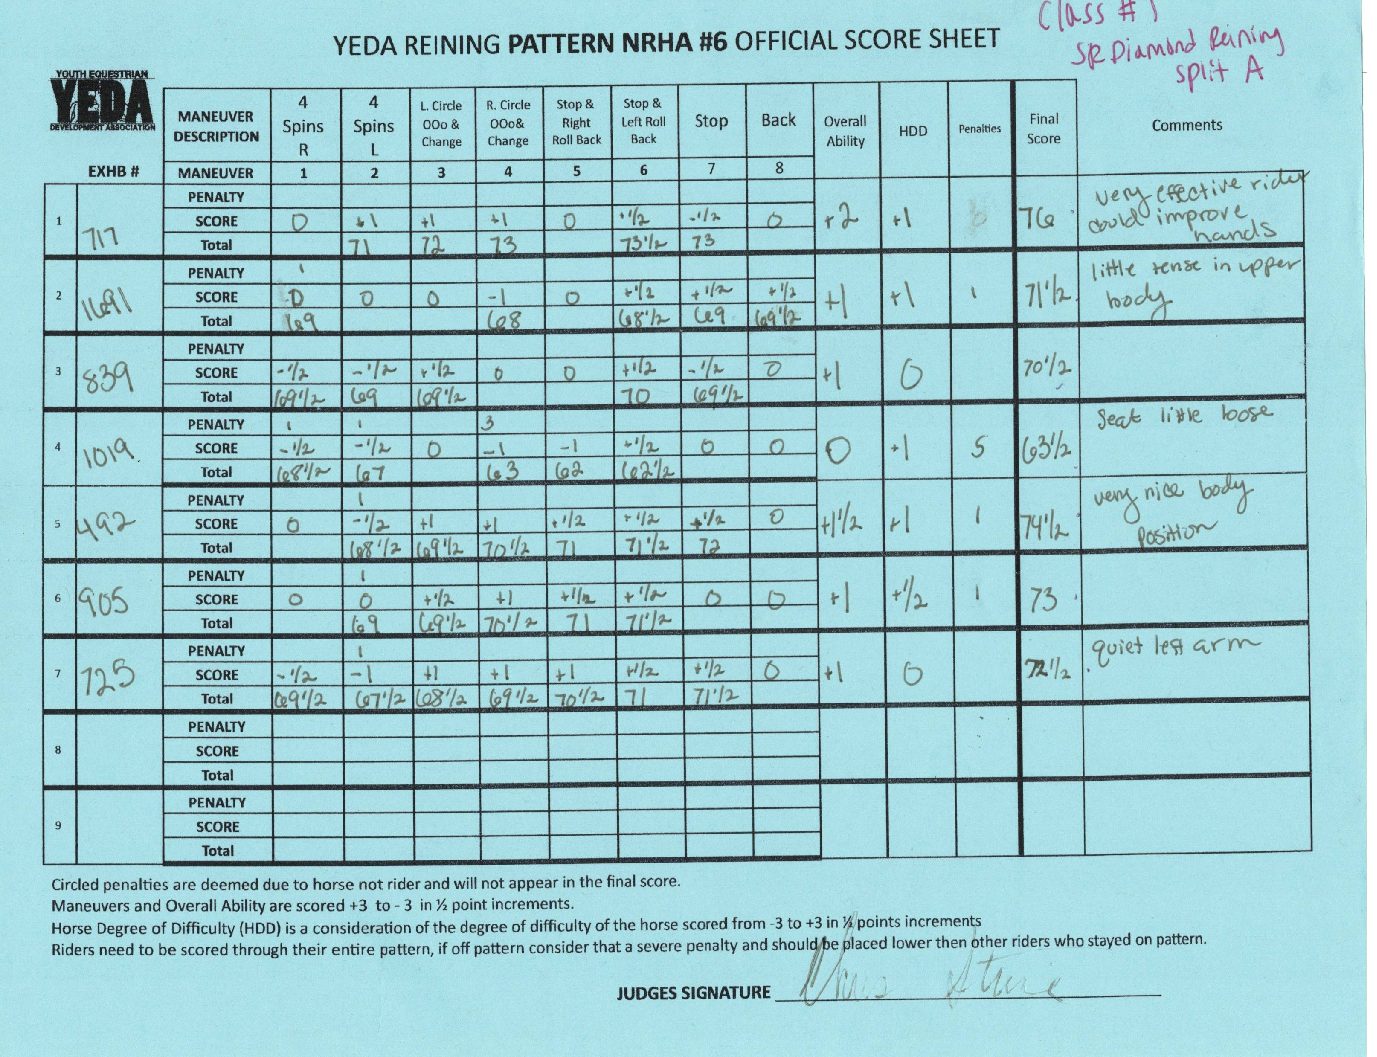 Class # 1
SR Diamond Reining
Split A
YEDA REINING PATTERN NRHA #6 OFFICIAL SCORE SHEET
YOUTH EQUESTRIAN
YEDA
DEVELOPMENT ASSOCIATION
EXHB #
MANEUVER DESCRIPTION 4 Spins R 4 Spins L L. Circle OOo & Change R. Circle OOo& Change Stop & Right Roll Back Stop & Left Roll Back Stop Back Overall Ability HDD Penalties Final Score Comments
MANEUVER 1 2 3 4 5 6 7 8
1 717
PENALTY
SCORE 0 +1 +1 +1 0 +1/2 -1/2 0 +2 +1 76
Total 71 72 73 73 1/2 73
very effective rider
could improve
hands
2 1691
PENALTY 1
SCORE 0 0 0 -1 0 +1/2 +1/2 +1/2 +1 +1 1 71 1/2
Total 69 68 68 1/2 69 69 1/2
little tense in upper
body
3 839
PENALTY
SCORE -1/2 -1/2 +1/2 0 0 +1/2 -1/2 0 +1 0 70 1/2
Total 69 1/2 69 69 1/2 70 69 1/2
4 1019
PENALTY 1 1 3
SCORE -1/2 -1/2 0 -1 -1 +1/2 0 0 0 +1 5 63 1/2
Total 68 1/2 67 63 62 62 1/2
Seat little loose
5 492
PENALTY 1
SCORE 0 -1/2 +1 +1 +1/2 +1/2 +1/2 0 +1 1/2 +1 1 74 1/2
Total 68 1/2 69 1/2 70 1/2 71 71 1/2 72
very nice body
position
6 905
PENALTY 1
SCORE 0 0 +1/2 +1 +1/2 +1/2 0 0 +1 +1/2 1 73
Total 69 69 1/2 70 1/2 71 71 1/2
7 725
PENALTY 1
SCORE -1/2 -1 +1 +1 +1 +1/2 +1/2 0 +1 0 72 1/2
Total 69 1/2 67 1/2 68 1/2 69 1/2 70 1/2 71 71 1/2
quiet left arm
8
PENALTY
SCORE
Total
9
PENALTY
SCORE
Total
Circled penalties are deemed due to horse not rider and will not appear in the final score.
Maneuvers and Overall Ability are scored +3 to - 3 in ½ point increments.
Horse Degree of Difficulty (HDD) is a consideration of the degree of difficulty of the horse scored from -3 to +3 in ½ points increments
Riders need to be scored through their entire pattern, if off pattern consider that a severe penalty and should be placed lower then other riders who stayed on pattern.
JUDGES SIGNATURE